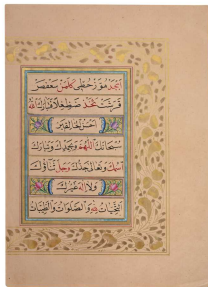 ابجد هوز حطي كلمن سعفص
قرشت ثخذ ضظغلا فتبارك الله
احسن الخالقين
سبحانك اللهم وبحمدك وتبارك
اسمك وتعالى جدك وجل ثناؤك
ولا اله غيرك
التحيات لله والصلوات والطيبات